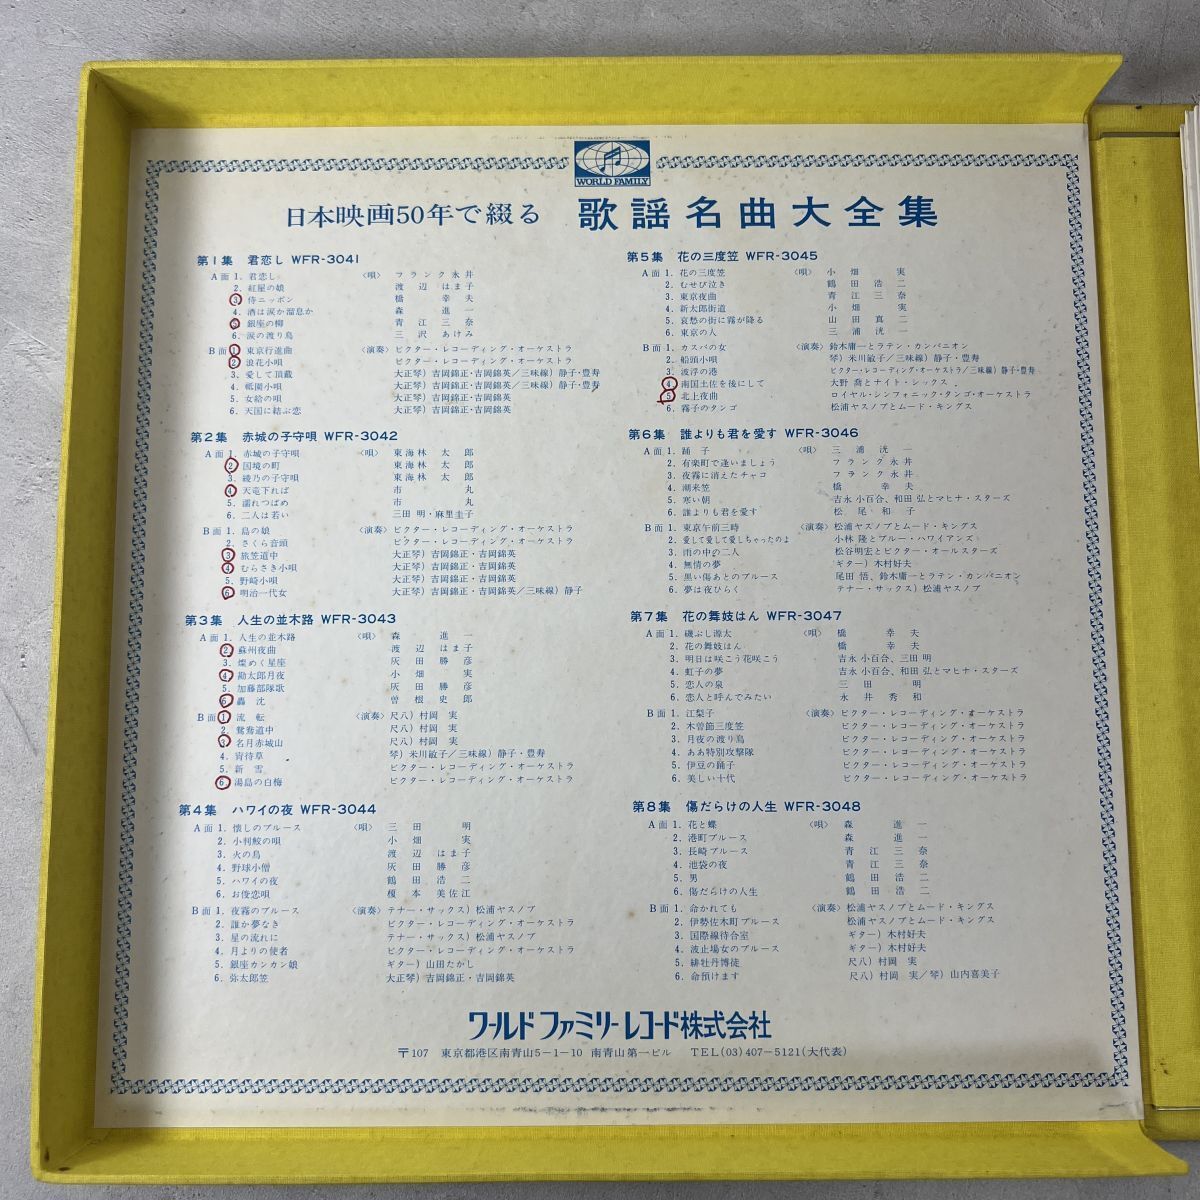 WORLD FAMILY
日本映画50年で綴る 歌謡名曲大全集
第1集 君恋し WFR-3041
A面 1. 君恋し 〈唄〉 フランク永井
2. 紅屋の娘 渡辺はま子
3. 侍ニッポン 橋幸夫
4. 酒は涙か溜息か 森進一
5. 銀座の柳 青江三奈
6. 涙の渡り鳥 三沢あけみ
B面 1. 東京行進曲 〈演奏〉 ビクター・レコーディング・オーケストラ
2. 浪花小唄 ビクター・レコーディング・オーケストラ
3. 愛して頂戴 大正琴) 吉岡錦正・吉岡錦英/三味線) 静子・豊寿
4. 祇園小唄 大正琴) 吉岡錦正・吉岡錦英/三味線) 静子・豊寿
5. 女給の唄 大正琴) 吉岡錦正・吉岡錦英
6. 天国に結ぶ恋 大正琴) 吉岡錦正・吉岡錦英
第2集 赤城の子守唄 WFR-3042
A面 1. 赤城の子守唄 〈唄〉 東海林太郎
2. 国境の町 東海林太郎
3. 綾乃の子守唄 東海林太郎
4. 天竜下れば 市丸
5. 濡れつばめ 市丸
6. 二人は若い 三田明・麻里圭子
B面 1. 島の娘 〈演奏〉 ビクター・レコーディング・オーケストラ
2. さくら音頭 ビクター・レコーディング・オーケストラ
3. 旅笠道中 大正琴) 吉岡錦正・吉岡錦英
4. むらさき小唄 大正琴) 吉岡錦正・吉岡錦英
5. 野崎小唄 大正琴) 吉岡錦正・吉岡錦英
6. 明治一代女 大正琴) 吉岡錦正・吉岡錦英/三味線) 静子
第3集 人生の並木路 WFR-3043
A面 1. 人生の並木路 〈唄〉 森進一
2. 蘇州夜曲 渡辺はま子
3. 燦めく星座 灰田勝彦
4. 勘太郎月夜 小畑実
5. 加藤部隊歌 灰田勝彦
6. 轟沈 曽根史郎
B面 1. 流転 〈演奏〉 尺八) 村岡実
2. 鴛鴦道中 尺八) 村岡実
3. 名月赤城山 尺八) 村岡実
4. 宵待草 琴) 米川敏子/三味線) 静子・豊寿
5. 新雪 ビクター・レコーディング・オーケストラ
6. 湯島の白梅 ビクター・レコーディング・オーケストラ
第4集 ハワイの夜 WFR-3044
A面 1. 懐しのブルース 〈唄〉 三田明
2. 小判鮫の唄 小畑実
3. 火の鳥 渡辺はま子
4. 野球小僧 灰田勝彦
5. ハワイの夜 鶴田浩二
6. お俊恋唄 榎本美佐江
B面 1. 夜霧のブルース 〈演奏〉 テナー・サックス) 松浦ヤスノブ
2. 誰か夢なき ビクター・レコーディング・オーケストラ
3. 星の流れに テナー・サックス) 松浦ヤスノブ
4. 月よりの使者 ビクター・レコーディング・オーケストラ
5. 銀座カンカン娘 ギター) 山田たかし
6. 弥太郎笠 大正琴) 吉岡錦正・吉岡錦英
第5集 花の三度笠 WFR-3045
A面 1. 花の三度笠 〈唄〉 小畑実
2. むせび泣き 鶴田浩二
3. 東京夜曲 青江三奈
4. 新太郎街道 小畑実
5. 哀愁の街に霧が降る 山田真二
6. 東京の人 三浦洸一
B面 1. カスバの女 〈演奏〉 鈴木庸一とラテン・カンパニオン
2. 船頭小唄 琴) 米川敏子/三味線) 静子・豊寿
3. 波浮の港 ビクター・レコーディング・オーケストラ/三味線) 静子・豊寿
4. 南国土佐を後にして 大野喬とナイト・シックス
5. 北上夜曲 ロイヤル・シンフォニック・タンゴ・オーケストラ
6. 霧子のタンゴ 松浦ヤスノブとムード・キングス
第6集 誰よりも君を愛す WFR-3046
A面 1. 踊子 〈唄〉 三浦洸一
2. 有楽町で逢いましょう フランク永井
3. 夜霧に消えたチャコ フランク永井
4. 潮来笠 橋幸夫
5. 寒い朝 吉永小百合、和田弘とマヒナ・スターズ
6. 誰よりも君を愛す 松尾和子
B面 1. 東京午前三時 〈演奏〉 松浦ヤスノブとムード・キングス
2. 愛して愛して愛しちゃったのよ 小林隆とブルー・ハワイアンズ
3. 雨の中の二人 松谷明宏とビクター・オールスターズ
4. 無情の夢 ギター) 木村好夫
5. 黒い傷あとのブルース 尾田悟、鈴木庸一とラテン・カンパニオン
6. 夢は夜ひらく テナー・サックス) 松浦ヤスノブ
第7集 花の舞妓はん WFR-3047
A面 1. 磯ぶし源太 〈唄〉 橋幸夫
2. 花の舞妓はん 橋幸夫
3. 明日は咲こう花咲こう 吉永小百合、三田明
4. 虹子の夢 吉永小百合、和田弘とマヒナ・スターズ
5. 恋人の泉 三田明
6. 恋人と呼んでみたい 永井秀和
B面 1. 江梨子 〈演奏〉 ビクター・レコーディング・オーケストラ
2. 木曽節三度笠 ビクター・レコーディング・オーケストラ
3. 月夜の渡り鳥 ビクター・レコーディング・オーケストラ
4. ああ特別攻撃隊 ビクター・レコーディング・オーケストラ
5. 伊豆の踊子 ビクター・レコーディング・オーケストラ
6. 美しい十代 ビクター・レコーディング・オーケストラ
第8集 傷だらけの人生 WFR-3048
A面 1. 花と蝶 〈唄〉 森進一
2. 港町ブルース 森進一
3. 長崎ブルース 青江三奈
4. 池袋の夜 青江三奈
5. 男 鶴田浩二
6. 傷だらけの人生 鶴田浩二
B面 1. 命かれても 〈演奏〉 松浦ヤスノブとムード・キングス
2. 伊勢佐木町ブルース 松浦ヤスノブとムード・キングス
3. 国際線待合室 ギター) 木村好夫
4. 波止場女のブルース ギター) 木村好夫
5. 緋牡丹博徒 尺八) 村岡実
6. 命預けます 尺八) 村岡実/琴) 山内喜美子
ワールドファミリーレコード株式会社
〒107 東京都港区南青山5-1-10 南青山第一ビル TEL(03)407-5121(大代表)